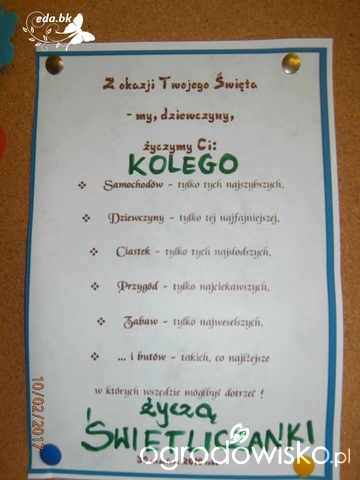 eda.bk
Z okazji Twojego Święta
- my, dziewczyny,
życzymy Ci:
KOLEGO
❖ Samochodów - tylko tych najszybszych,
❖ Dziewczyny - tylko tej najfajniejszej,
❖ Ciastek - tylko tych najsłodszych,
❖ Przygód - tylko najciekawszych,
❖ Zabaw - tylko najweselszych,
❖ ... i butów - takich, co najlżejsze
w których wszędzie mógłbyś dotrzeć !
życzą
ŚWIETLICZANKI
ogrodowisko.pl
10/02/2017